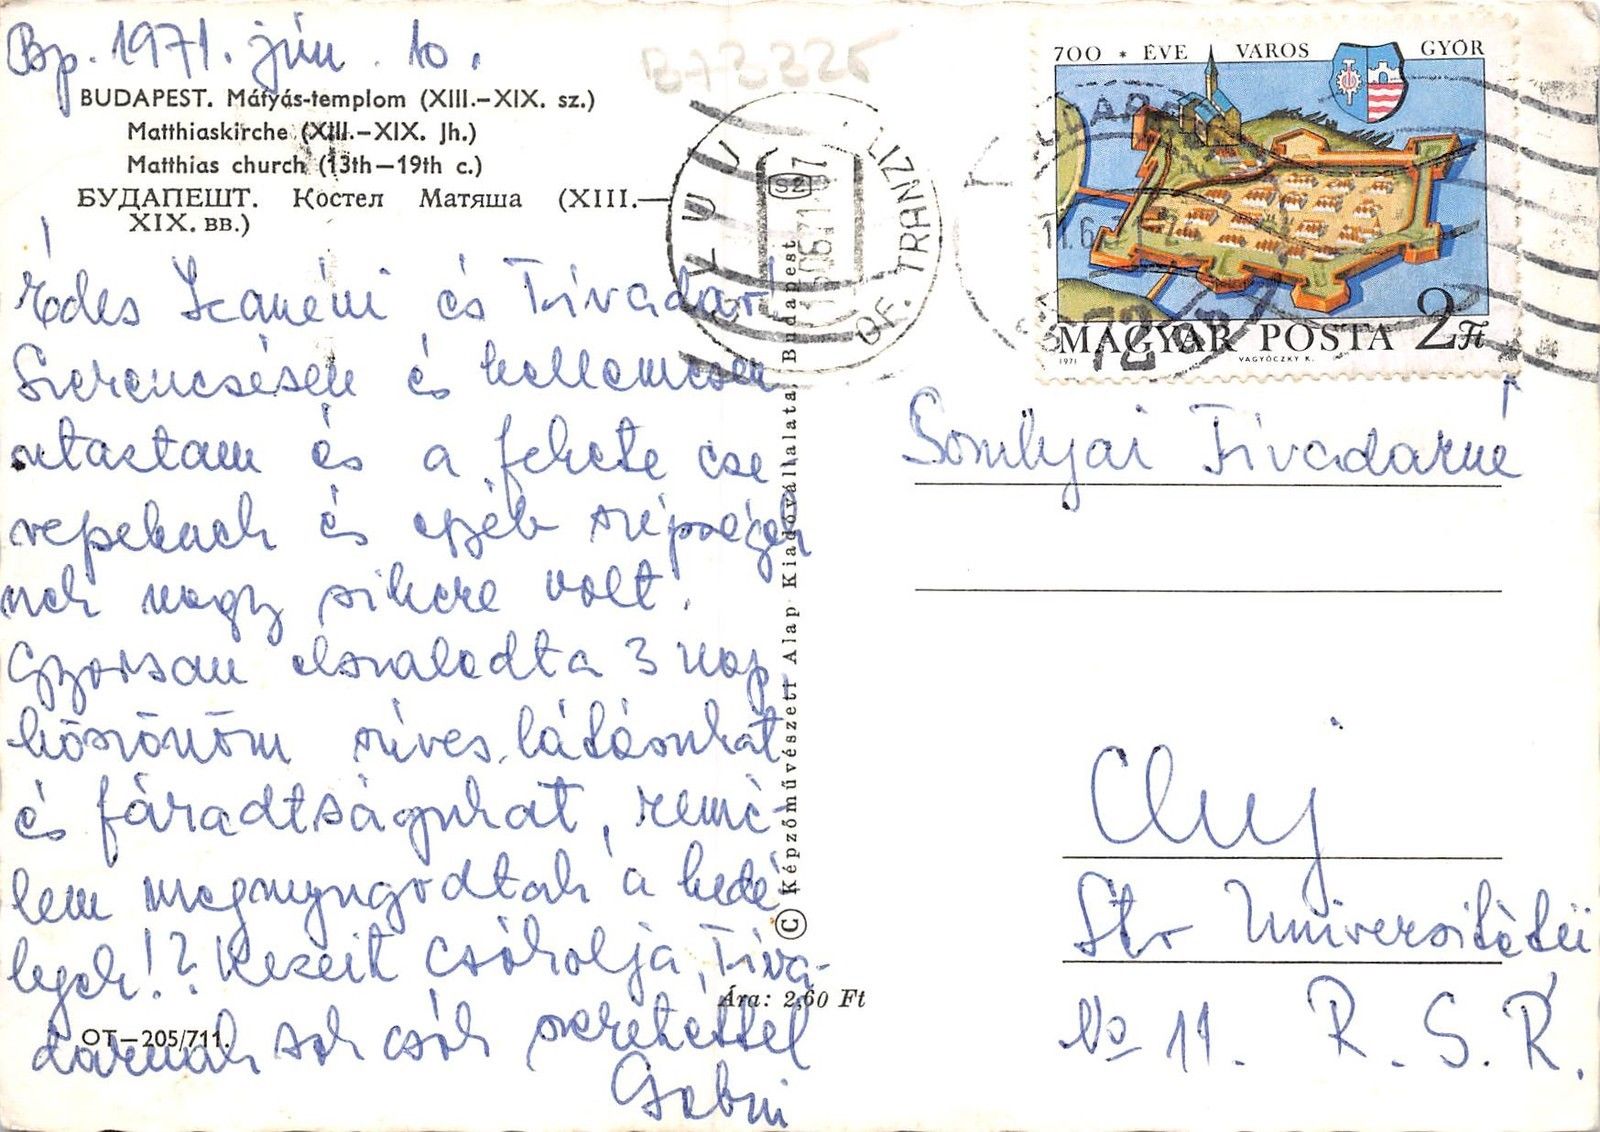 Bp. 1971. jún. 10.
BUDAPEST. Mátyás-templom (XIII.–XIX. sz.)
Matthiaskirche (XIII.–XIX. Jh.)
Matthias church (13th–19th c.)
БУДАПЕШТ. Костел Матяша (XIII.–
XIX. вв.)
Édes és Tivadar!
Szerencsésen és kellemesen
utaztam és a fekete cse
repeknek és egyéb szépségek
nek nagy sikere volt.
Gyorsan elszaladt a 3 nap,
köszönöm szíves látásukat
és fáradtságukat, remé-
lem megnyugodtak a kedé-
lyek!? Kezeit csókolja, Tiva-
darnak sok csók szeretettel
Gabri
OT–205/711.
Ára: 2,60 Ft
© Képzőművészeti Alap Kiadóvállalata, Budapest
B73325
OF. TRANZIT
700 * ÉVE VÁROS GYŐR
MAGYAR POSTA 2 Ft
1971 VAGYÓCZKY K.
Somlyai Tivadarné
Cluj
Str Universitàtii
No 11. R. S. R.